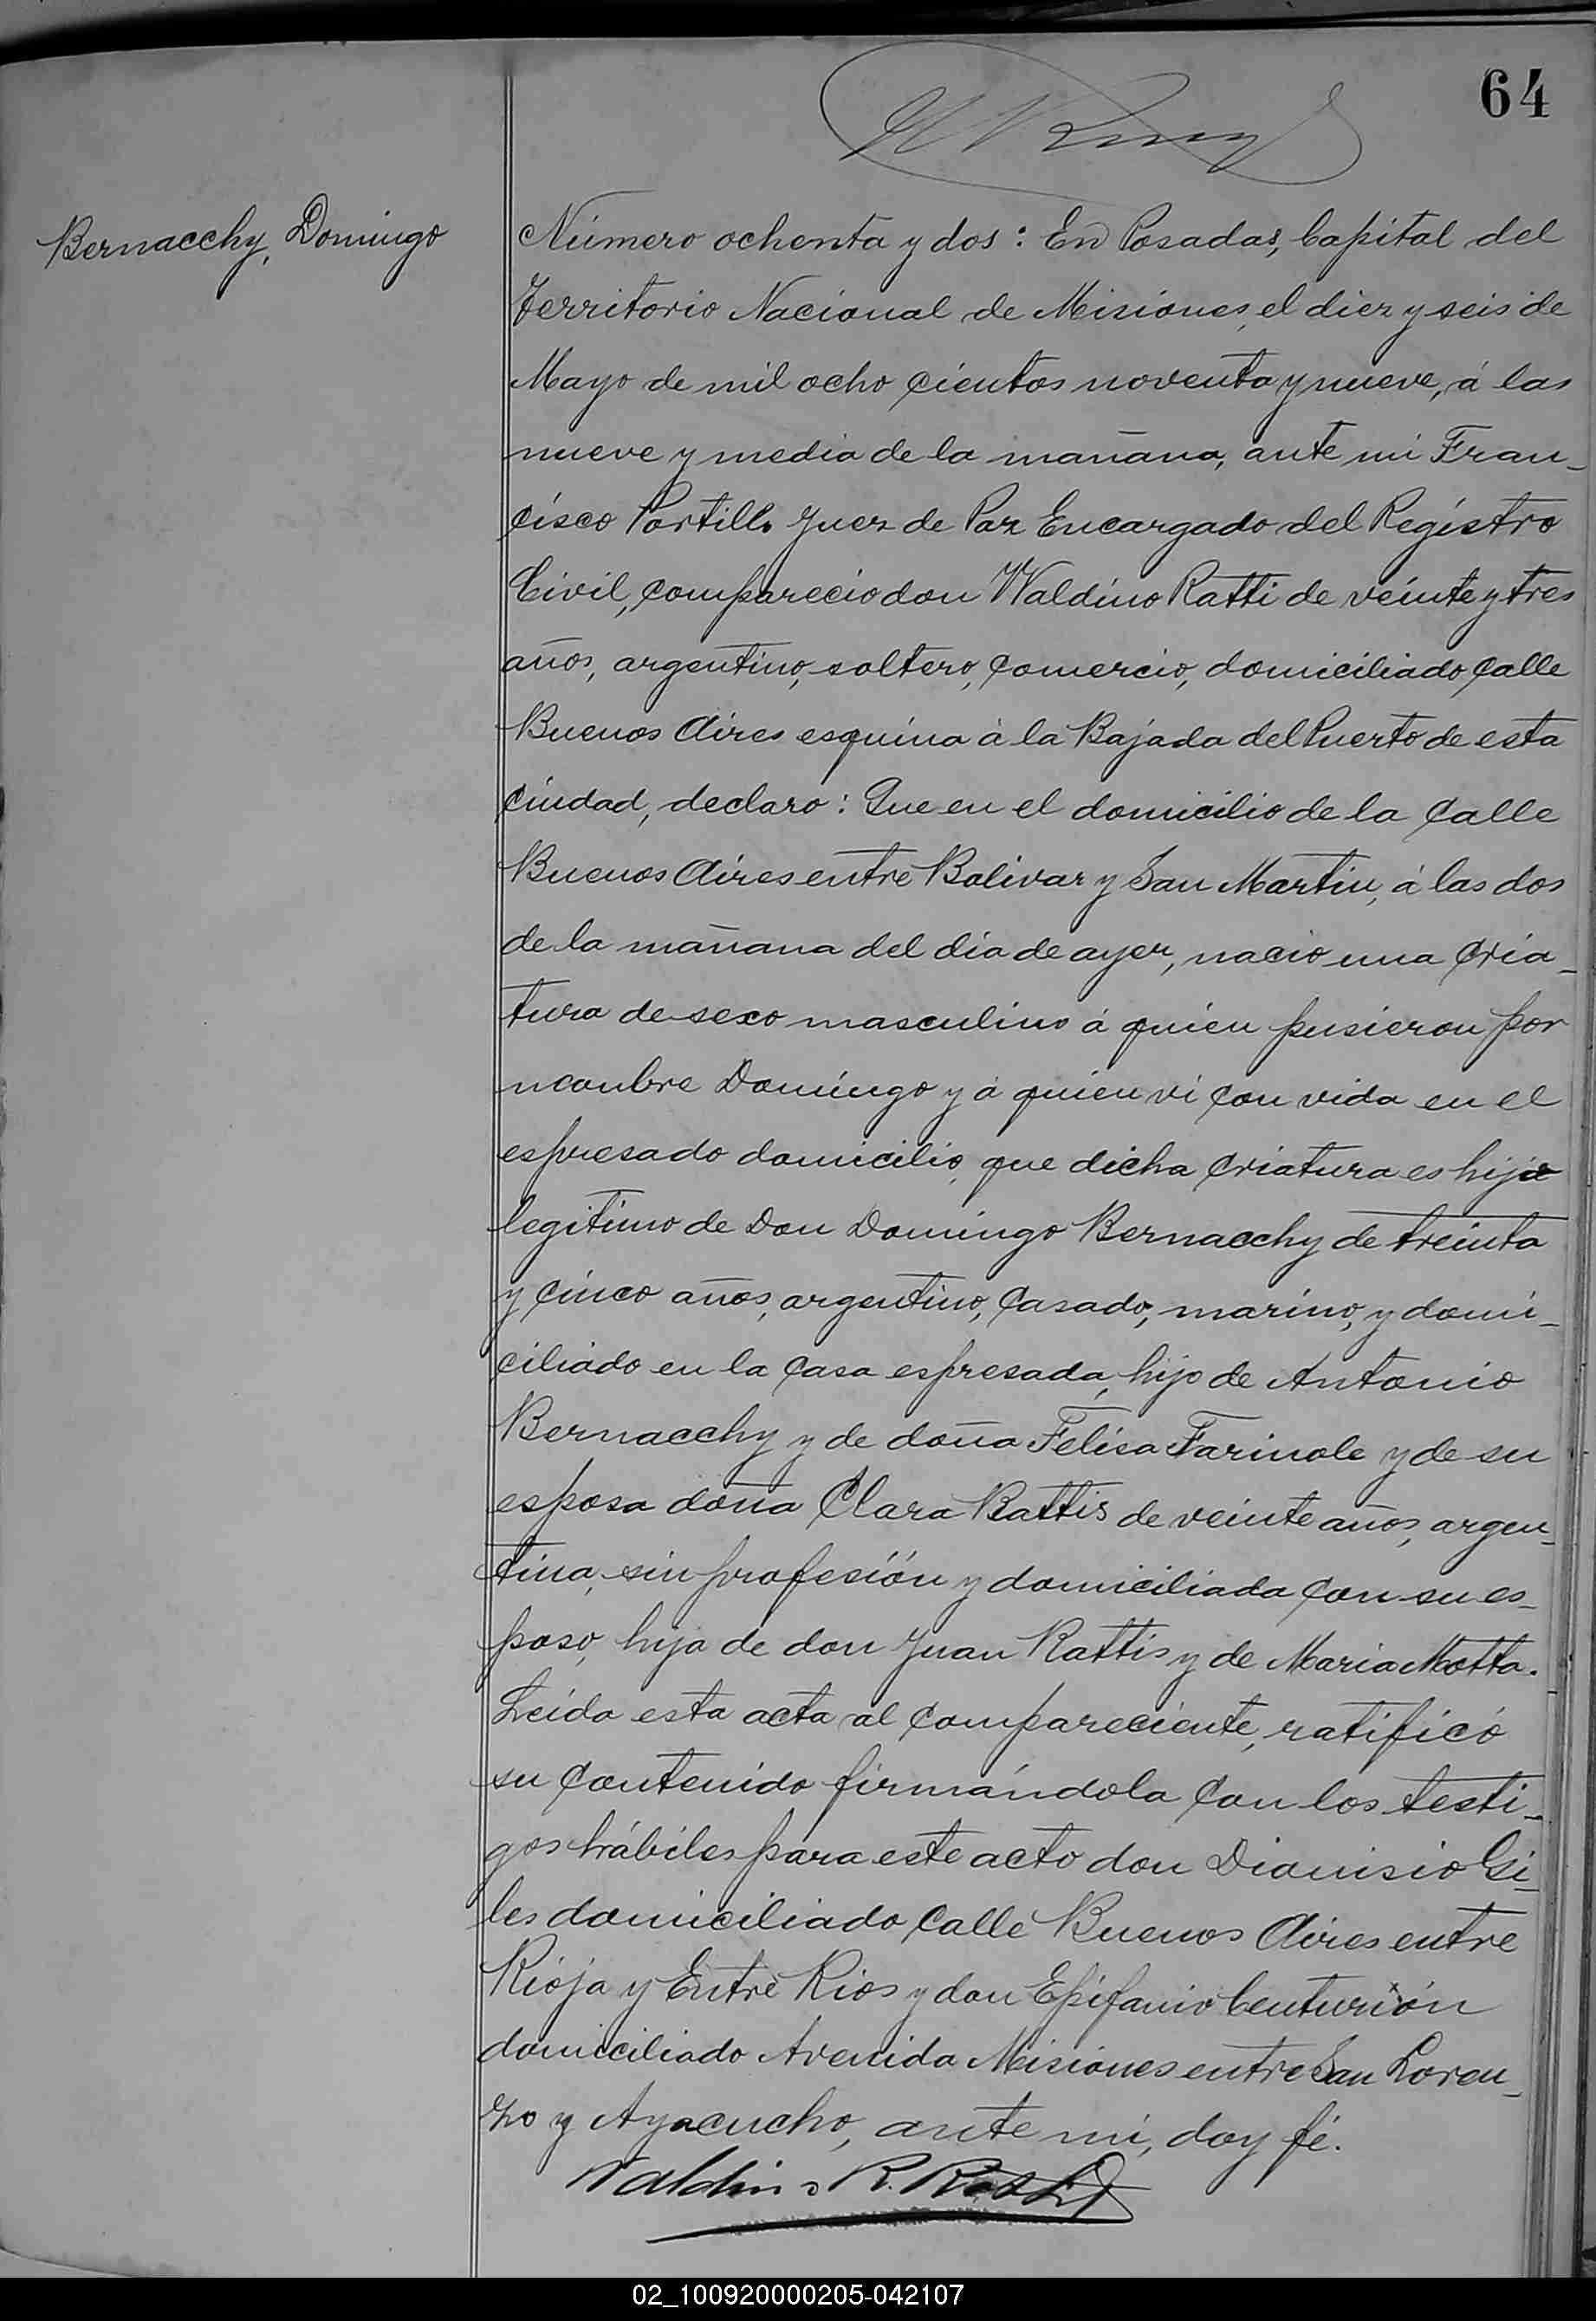 64
Bernacchy, Domingo
Número ochenta y dos: En Posadas, Capital del
Territorio Nacional de Misiones, el diez y seis de
Mayo de mil ocho cientos noventa y nueve, á las
nueve y media de la mañana, ante mi Fran-
cisco Portillo Juez de Paz Encargado del Registro
Civil, comparecio don Waldino Ratti de veinte y tres
años, argentino, soltero, comercio, domiciliado calle
Buenos Aires esquina á la Bajada del Puerto de esta
ciudad, declaro: Que en el domicilio de la calle
Buenos Aires entre Bolivar y San Martin, á las dos
de la mañana del dia de ayer, nacio una cria-
tura de sexo masculino á quien pusieron por
nombre Domingo y á quien vi con vida en el
espresado domicilio, que dicha criatura es hijo
legitimo de Don Domingo Bernacchy de treinta
y cinco años, argentino, casado, marino, y domi-
ciliado en la casa espresada, hijo de Antonio
Bernacchy y de doña Felisa Farinole y de su
esposa doña Clara Rattis de veinte años, argen-
tina, sin profesión y domiciliada con su es-
poso, hija de don Juan Rattis y de Maria Motta.
Leida esta acta al compareciente, ratificó
su contenido firmándola con los testi-
gos hábiles para este acto don Dionisio Gi-
les domiciliado calle Buenos Aires entre
Rioja y Entre Rios y don Epifanio Centurión
domiciliado Avenida Misiones entre San Loren-
zo y Ayacucho, ante mi, doy fé.
Waldino R. Ratti
02_100920000205-042107